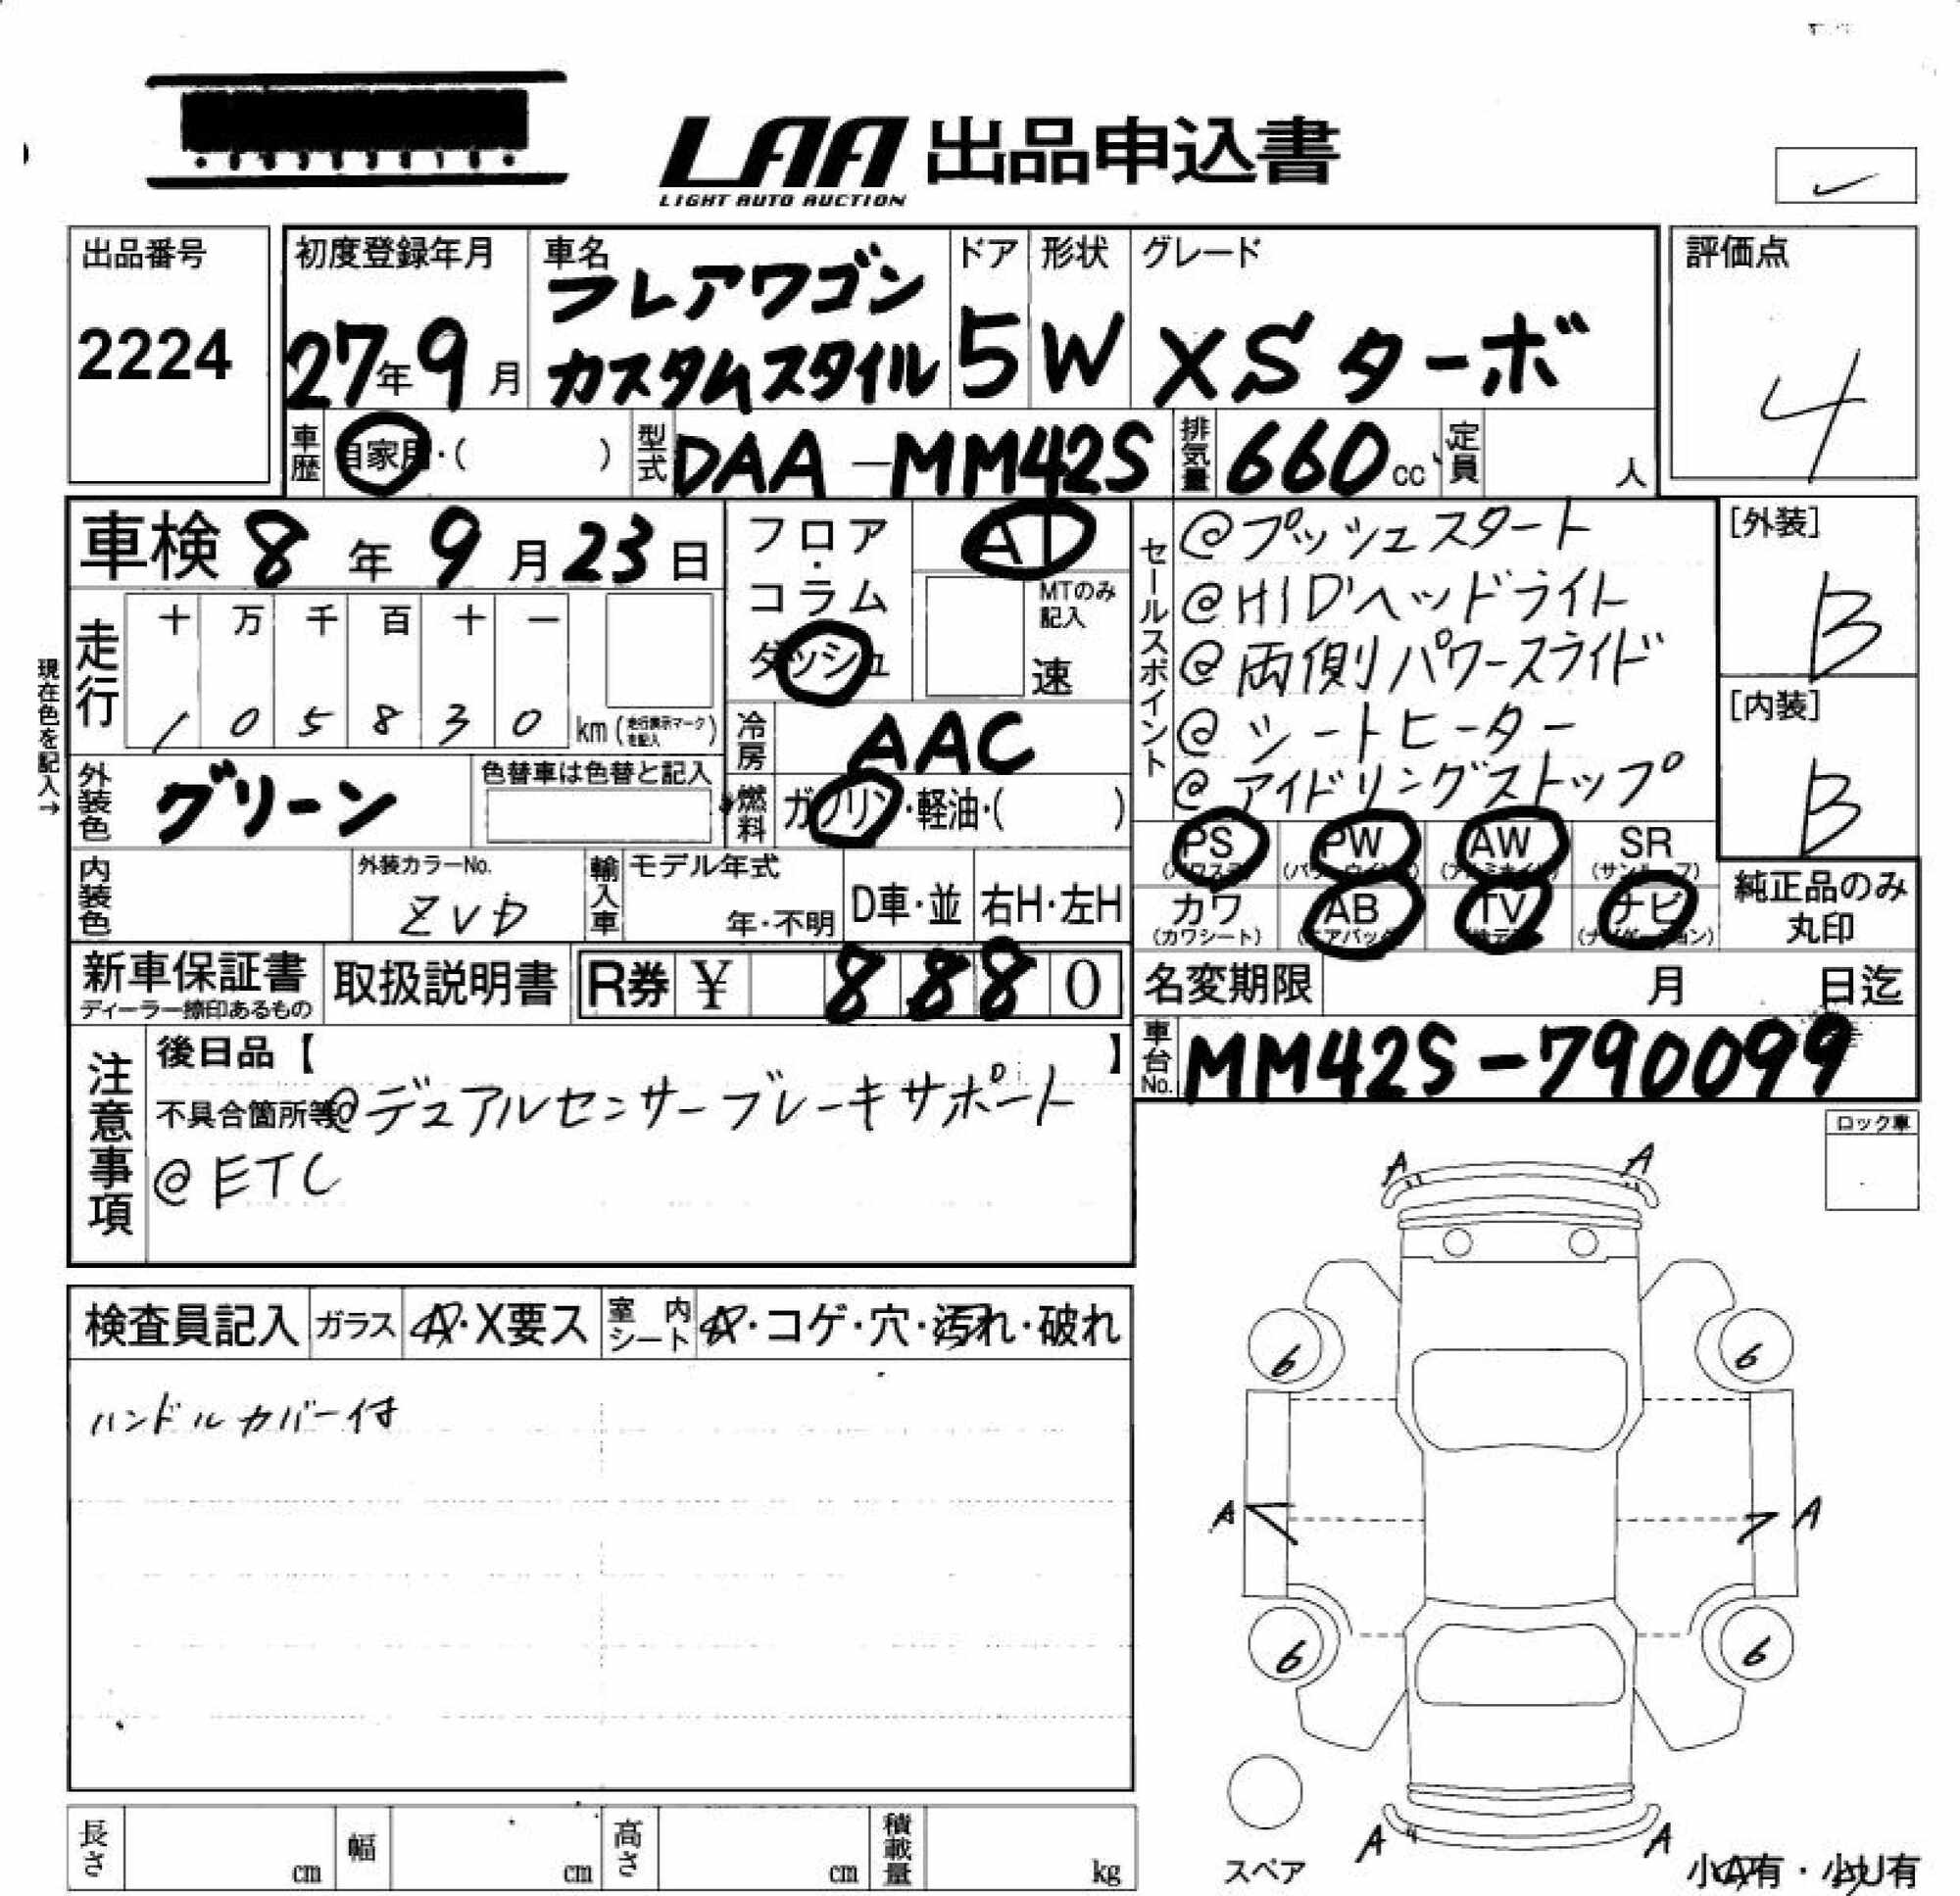 LAA 出品申込書
LIGHT AUTO AUCTION
出品番号
2224
初度登録年月
27年9月
車名
フレアワゴン
カスタムスタイル
ドア
5
形状
W
グレード
XSターボ
評価点
4
車歴
自家用・( )
型式
DAA-MM42S
排気量
660cc
定員
人
車検 8年 9月 23日
現在色を記入→
走行
十 万 千 百 十 一
1 0 5 8 3 0 km (走行表示マークを記入)
外装色
グリーン
色替車は色替と記入
内装色
外装カラーNo.
ZVD
輸入車
モデル年式
年・不明
D車・並
右H・左H
フロア
・
コラム
ダッシュ
AT
MTのみ記入
速
冷房
AAC
燃料
ガソリン・軽油・( )
セールスポイント
@プッシュスタート
@HIDヘッドライト
@両側パワースライド
@シートヒーター
@アイドリングストップ
[外装]
B
[内装]
B
PS (パワステ)
PW (パワーウインドウ)
AW (アルミホイル)
SR (サンルーフ)
カワ (カワシート)
AB (エアバック)
TV
ナビ (ナビゲーション)
純正品のみ
丸印
新車保証書
ディーラー捺印あるもの
取扱説明書
R券 ¥ 8 8 8 0
名変期限 月 日迄
車台No.
MM42S-790099
注意事項
後日品【 】
不具合箇所等 @デュアルセンサーブレーキサポート
@ETC
ロック車
検査員記入
ガラス
A・X要ス
室内シート
A・コゲ・穴・汚れ・破れ
ハンドルカバー付
A A
6 6
A A
6 6
A A
スペア
小A有・小U有
長さ cm
幅 cm
高さ cm
積載量 kg